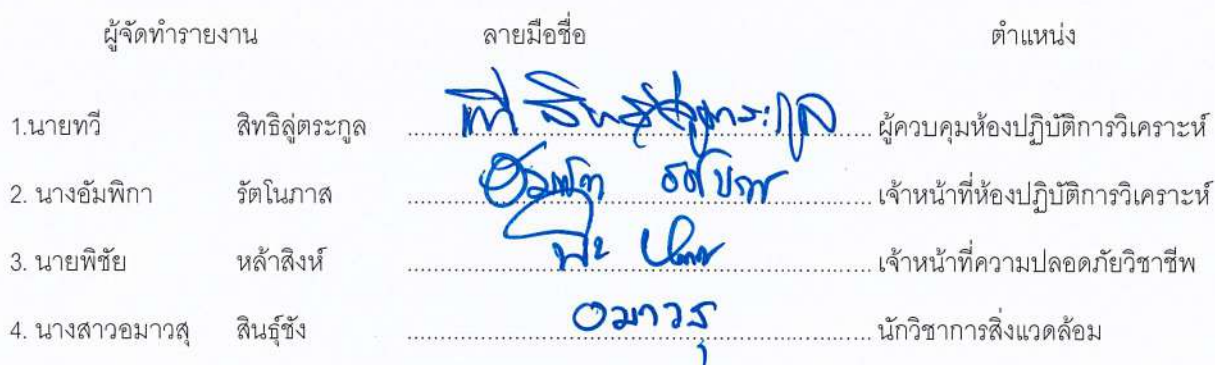 ผู้จัดทำรายงาน ลายมือชื่อ ตำแหน่ง
1.นายทวี สิทธิลู่ตระกูล ผู้ควบคุมห้องปฏิบัติการวิเคราะห์
2. นางอัมพิกา รัตโนภาส เจ้าหน้าที่ห้องปฏิบัติการวิเคราะห์
3. นายพิชัย หล้าสิงห์ เจ้าหน้าที่ความปลอดภัยวิชาชีพ
4. นางสาวอมาวสุ สินธุ์ชัง อมาวสุ นักวิชาการสิ่งแวดล้อม